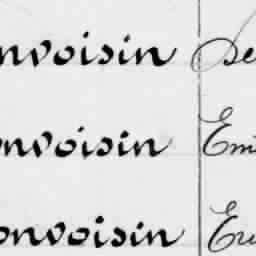 nvoisin Se
nvoisin Emi
onvoisin Eri